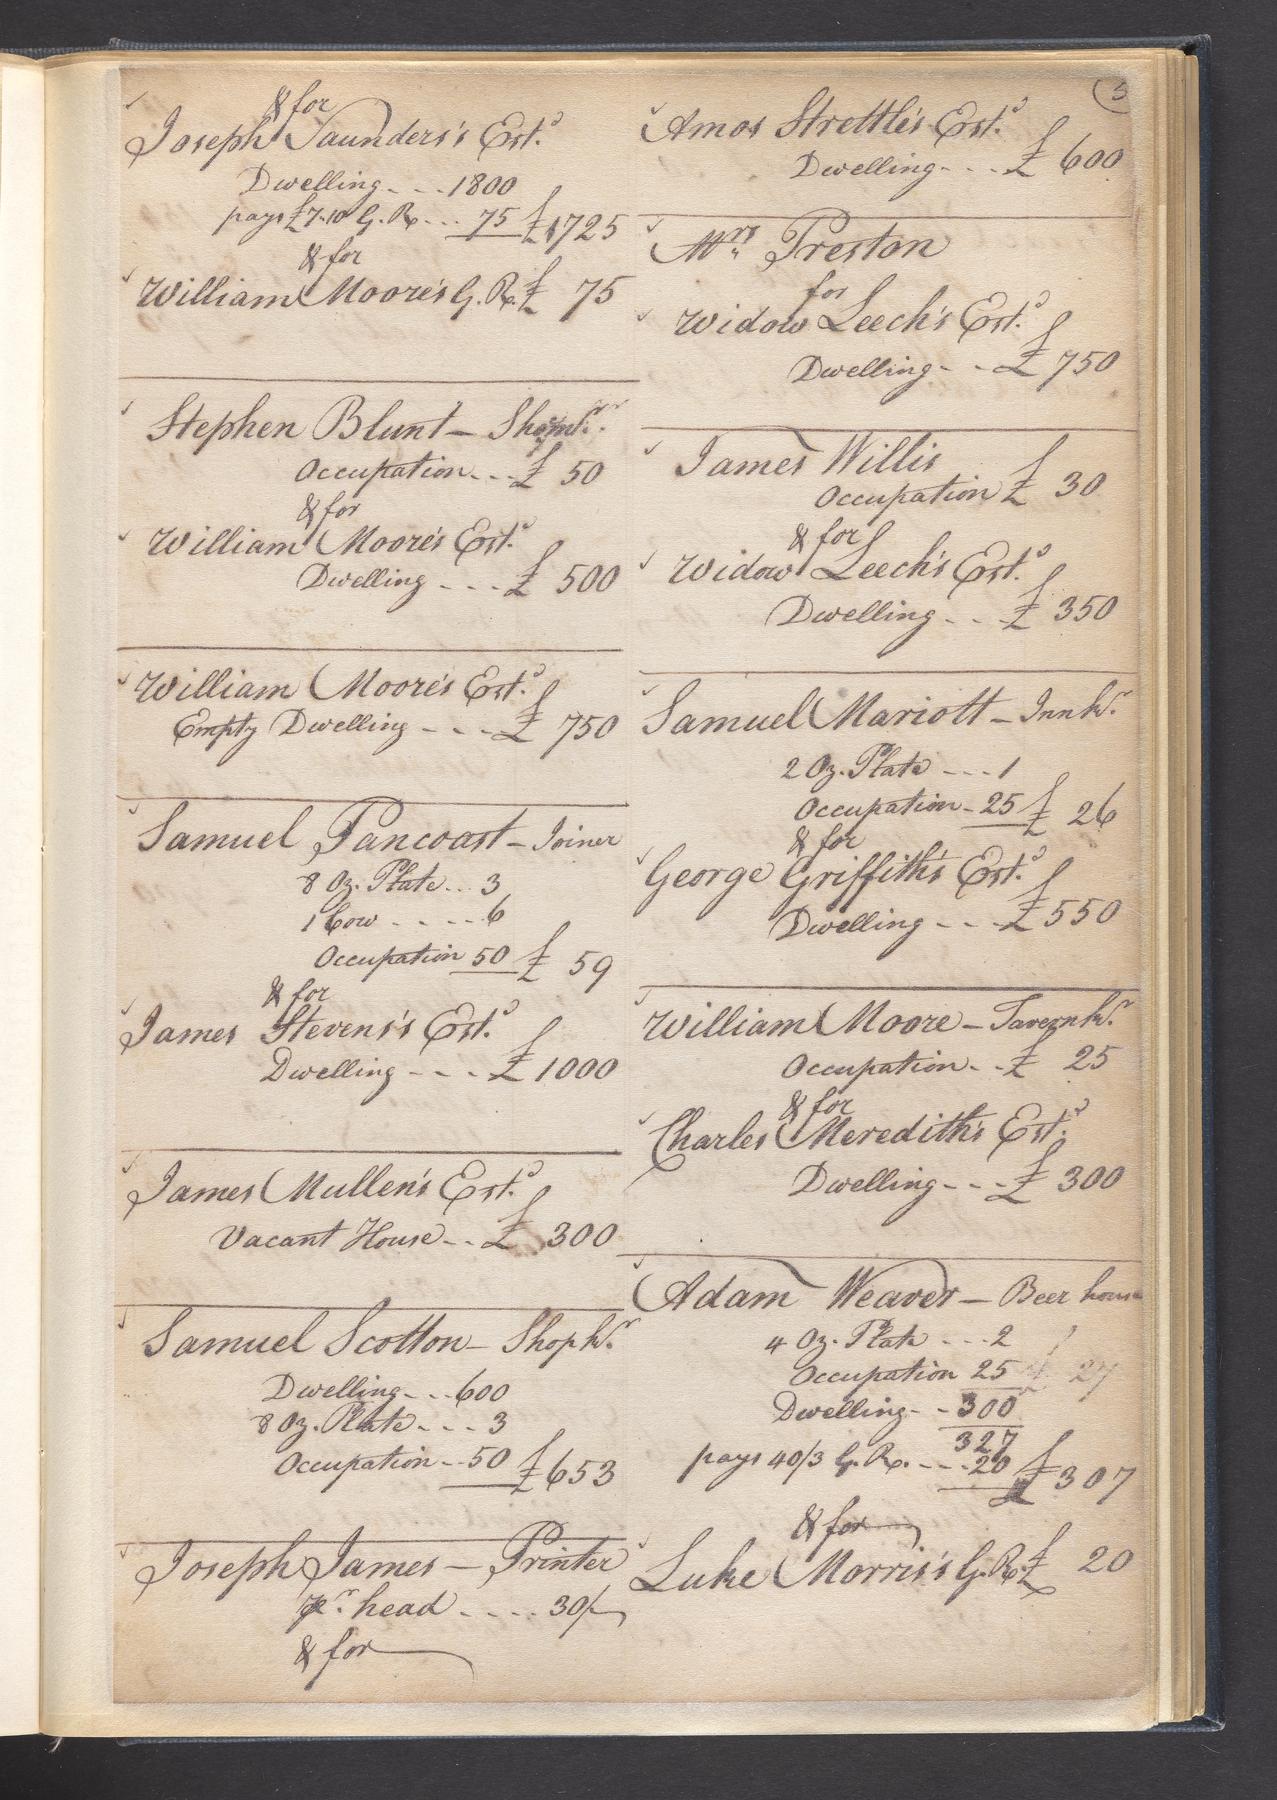 & for
Joseph Saunders's Est.d
Dwelling - - - 1800
pays £7.10 G. R. - - - 75 £1725
& for
William Moore's G. R. £ 75
Stephen Blunt - Shopk.r
Occupation - - - £ 50
& for
William Moore's Est.d
Dwelling - - - £ 500
William Moore's Est.d
Empty Dwelling - - - £ 750
Samuel Pancoast - Joiner
8 Oz. Plate - - 3
1 Cow - - - - 6
Occupation 50 £ 59
& for
James Stevens's Est.d
Dwelling - - - £ 1000
James Mullen's Est.d
Vacant House - - £ 300
Samuel Scotton - Shopk.r
Dwelling - - - 600
8 Oz. Plate - - - 3
Occupation - - 50 £653
Joseph James - Printer
Pr. head - - - - 30/
& for
5
Amos Strettle's Est.d
Dwelling - - - £ 600
Mrs Preston
for
Widow Leech's Est.d
Dwelling - - £ 750
James Willis
Occupation £ 30
& for
Widow Leech's Est.d
Dwelling - - - £ 350
Samuel Mariott - Innk.r
2 Oz. Plate - - - 1
Occupation - 25 £ 26
& for
George Griffith's Est.d
Dwelling - - - £ 550
William Moore - Tavernk.r
Occupation - - £ 25
& for
Charles Meredith's Est.d
Dwelling - - - £ 300
Adam Weaver - Beer house
4 Oz. Plate - - - 2
Occupation 25 £ 27
Dwelling - - 300
327
pays 40/3 G. R. - - - 20 £307
& for
Luke Morris's G. R. £ 20